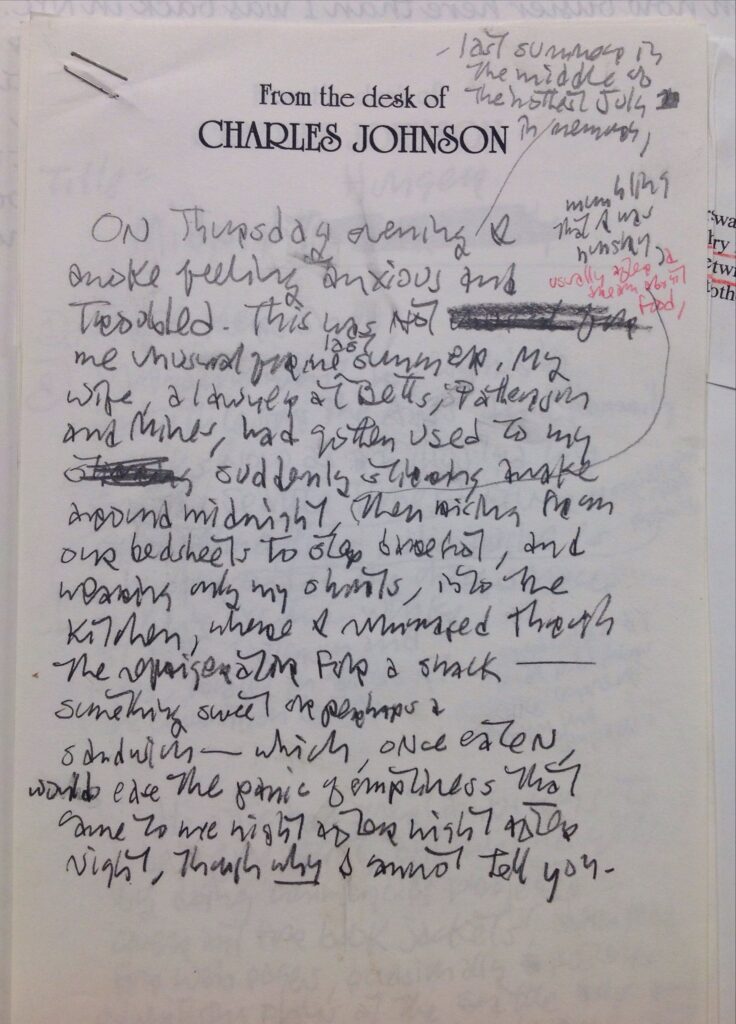 last summer in
the middle of
the hottest July
in memory,
From the desk of
CHARLES JOHNSON
mumbling
that I was
hungry,
usually after a
dream about
food,
ON Thursday evening I
awoke feeling anxious and
Troubled. This was Not
me unusual for last summer. My
wife, a lawyer at Betts, Patterson
and Mines, had gotten used to my
suddenly sitting awake
around midnight, then rising from
our bedsheets to step barefoot, and
wearing only my shorts, into the
kitchen, where I rummaged through
the refrigerator for a snack —
something sweet or perhaps a
sandwich — which, once eaten,
would ease the panic of emptiness that
came to me night after night after
night, though why I cannot tell you.